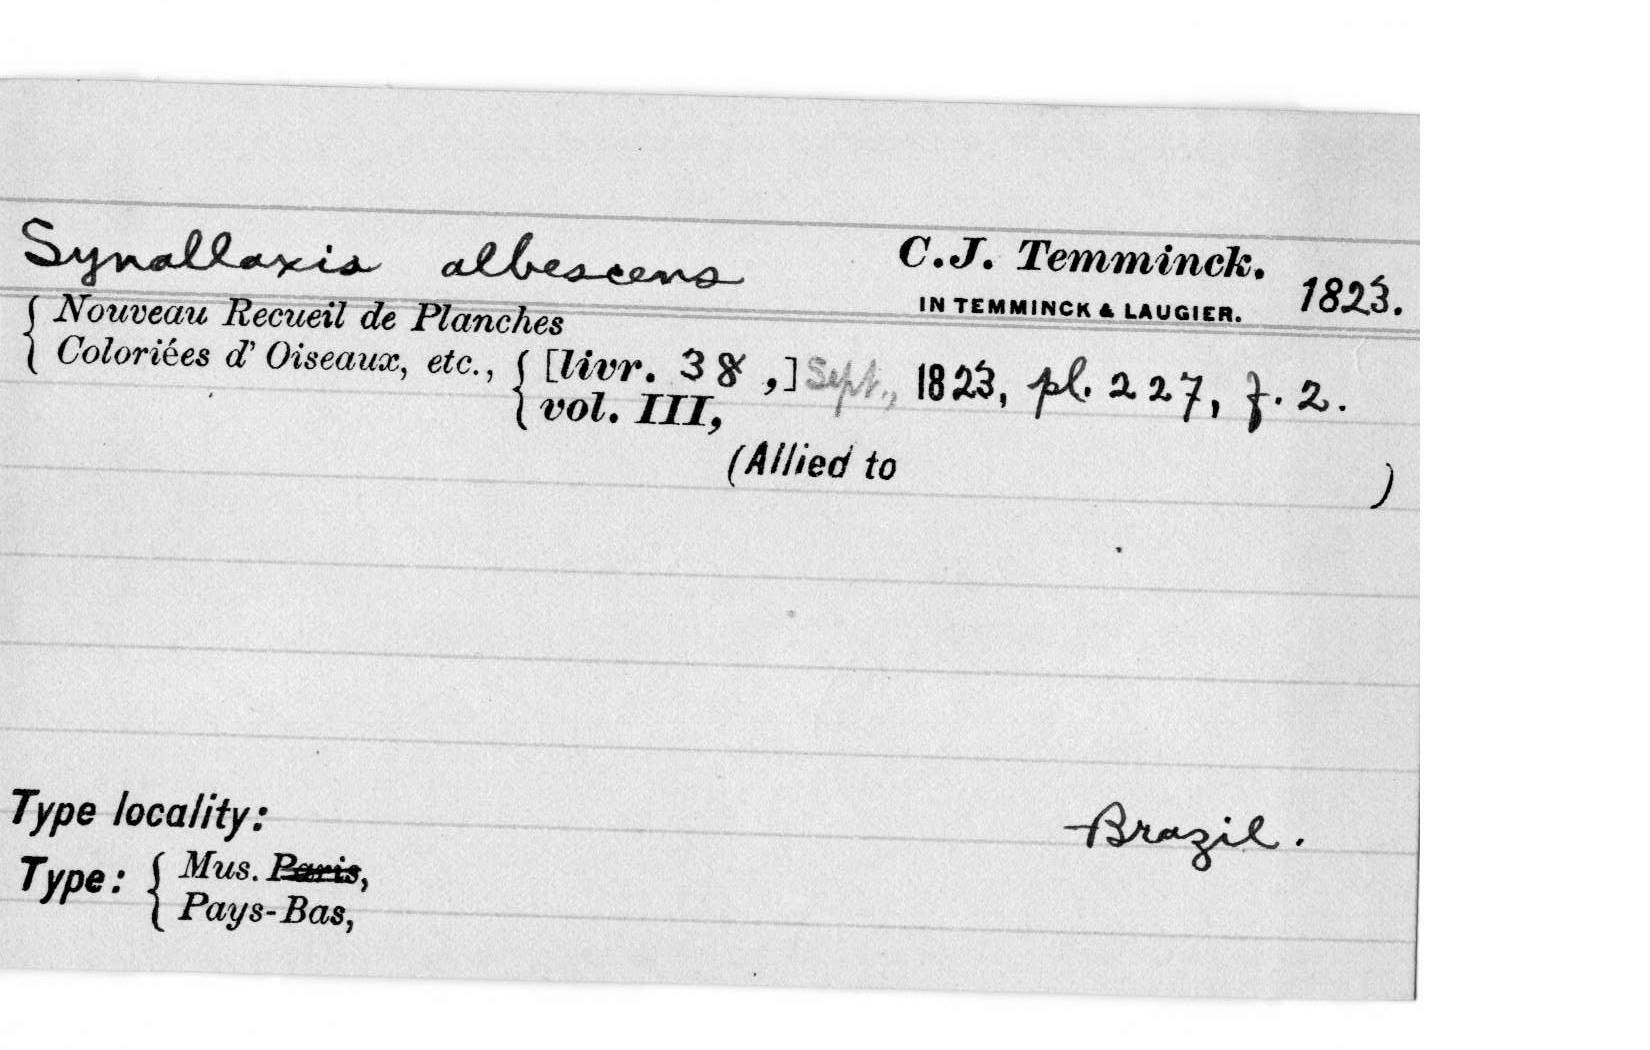 Synallaxis albescens C.J. Temminck. 1823.
IN TEMMINCK & LAUGIER.
{ Nouveau Recueil de Planches
Coloriées d' Oiseaux, etc., { [livr. 38 ,] Sept., 1823, pl. 227, f. 2.
vol. III,
(Allied to )
Type locality: Brazil.
Type: { Mus. Paris,
Pays-Bas,